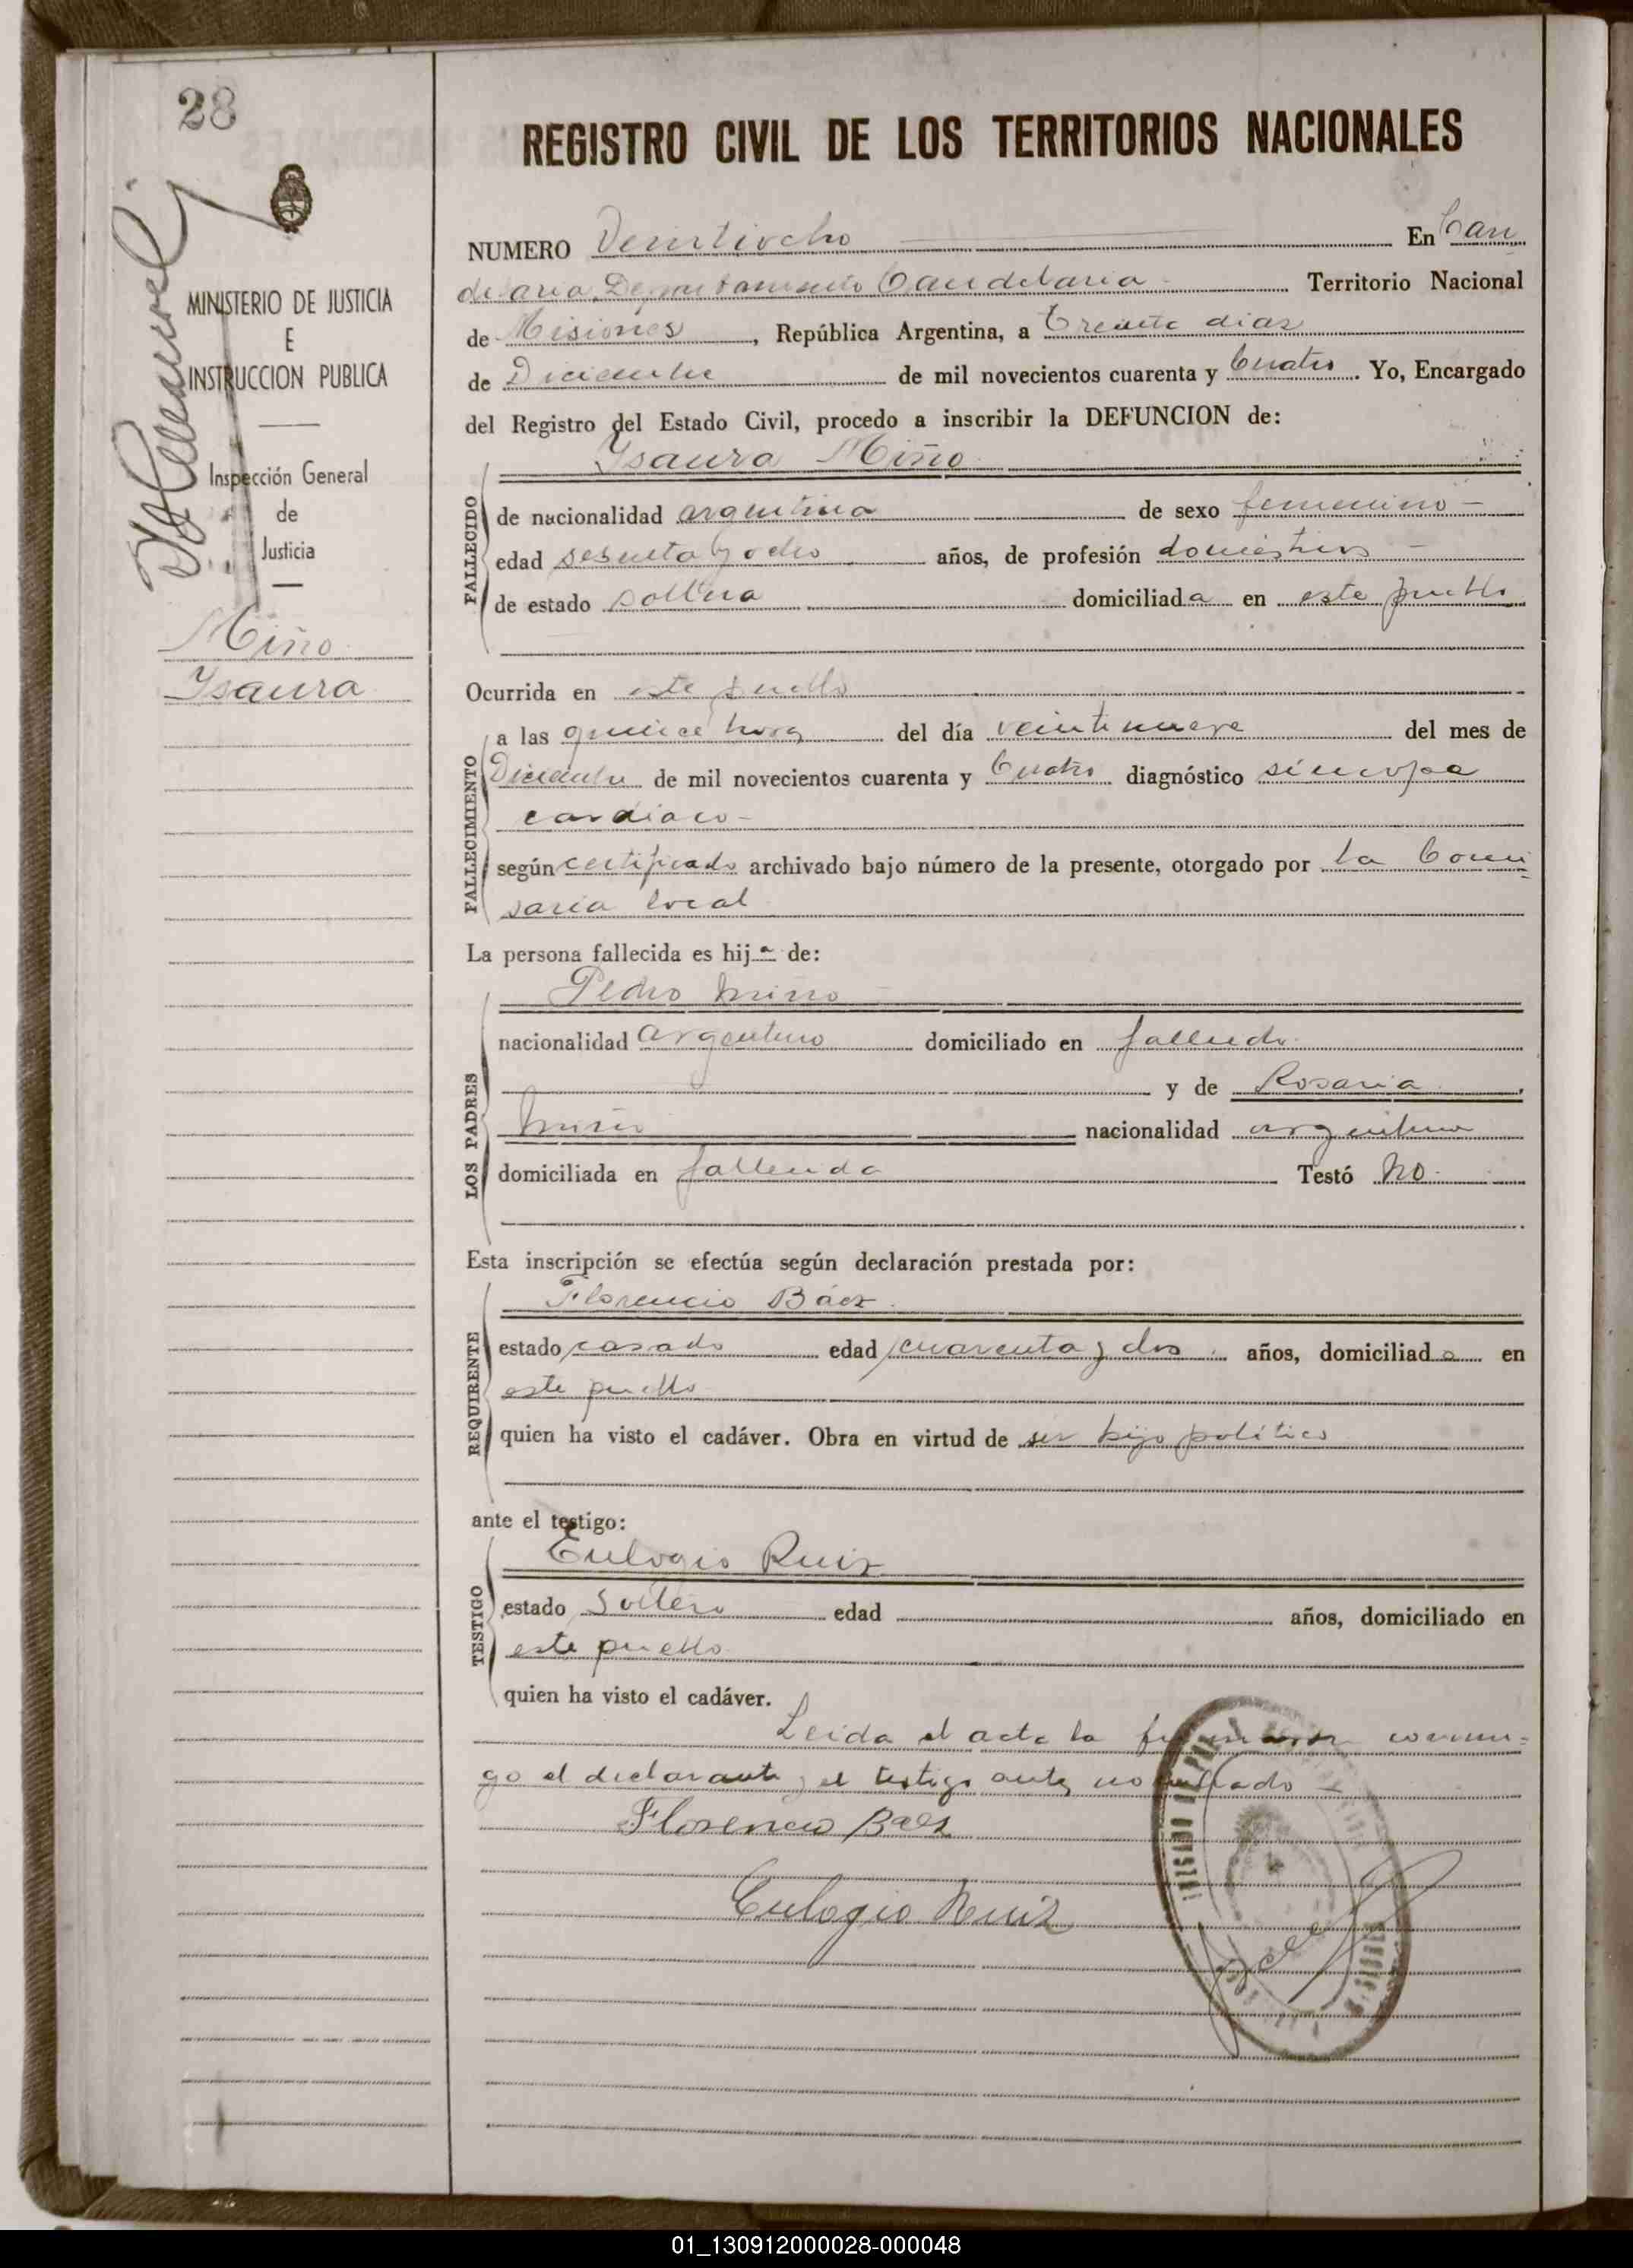 28
MINISTERIO DE JUSTICIA
E
INSTRUCCION PUBLICA
Inspección General
de
Justicia
Miño
Ysaura
REGISTRO CIVIL DE LOS TERRITORIOS NACIONALES
NUMERO Veintiocho En Can
delaria Departamento Candelaria Territorio Nacional
de Misiones, República Argentina, a Treinta dias
de Diciembre de mil novecientos cuarenta y Cuatro. Yo, Encargado
del Registro del Estado Civil, procedo a inscribir la DEFUNCION de:
Ysaura Miño
FALLECIDO
de nacionalidad argentina de sexo femenino -
edad sesenta y ocho años, de profesión domésticos -
de estado soltera domiciliada en este pueblo
Ocurrida en este pueblo
FALLECIMIENTO
a las quince horas del día veintinueve del mes de
Diciembre de mil novecientos cuarenta y Cuatro diagnóstico síncopa
cardiaco -
según certificado archivado bajo número de la presente, otorgado por la Comi
saria local
La persona fallecida es hija de:
LOS PADRES
Pedro Miño
nacionalidad argentino domiciliado en fallecido
y de Rosaria
Miño nacionalidad argentina
domiciliada en fallecida Testó No
Esta inscripción se efectúa según declaración prestada por:
REQUIRENTE
Florencio Báez
estado casado edad cuarenta y dos años, domiciliado en
este pueblo
quien ha visto el cadáver. Obra en virtud de ser hijo político
ante el testigo:
TESTIGO
Eulogio Ruiz
estado soltero edad años, domiciliado en
este pueblo
quien ha visto el cadáver.
Leida el acta la firmaron conmi=
go el declarante y el testigo antes nombrado -
Florencio Baez
Eulogio Ruiz
01_130912000028-000048